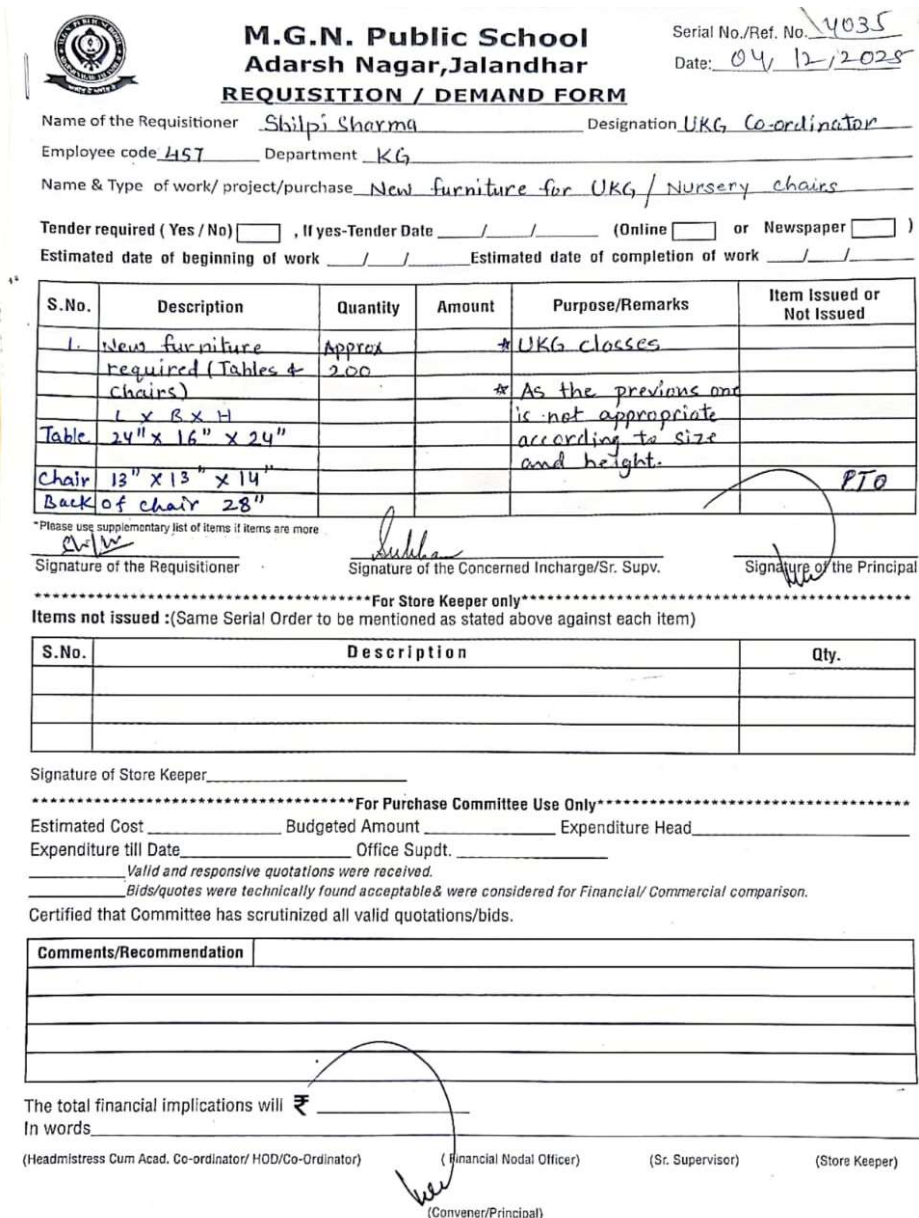 M.G.N. Public School
Adarsh Nagar,Jalandhar
REQUISITION / DEMAND FORM
Serial No./Ref. No. 4035
Date: 04/12/2025
Name of the Requisitioner Shilpi Sharma Designation UKG Co-ordinator
Employee code 457 Department KG
Name & Type of work/ project/purchase New furniture for UKG / Nursery chairs
Tender required ( Yes / No) , If yes-Tender Date ____/____/____ (Online or Newspaper )
Estimated date of beginning of work ___/___/___ Estimated date of completion of work ___/___/___
S.No. Description Quantity Amount Purpose/Remarks Item Issued or Not Issued
1. New furniture Approx * UKG classes
required (Tables & 200
chairs) * As the previous one
L x B x H is not appropriate
Table 24" x 16" x 24" according to size
and height.
Chair 13" x 13" x 14" PTO
Back of chair 28"
*Please use supplementary list of items if items are more
Signature of the Requisitioner Signature of the Concerned Incharge/Sr. Supv. Signature of the Principal
For Store Keeper only
Items not issued :(Same Serial Order to be mentioned as stated above against each item)
S.No. Description Qty.
Signature of Store Keeper
For Purchase Committee Use Only
Estimated Cost Budgeted Amount Expenditure Head
Expenditure till Date Office Supdt.
Valid and responsive quotations were received.
Bids/quotes were technically found acceptable& were considered for Financial/ Commercial comparison.
Certified that Committee has scrutinized all valid quotations/bids.
Comments/Recommendation
The total financial implications will ₹
In words
(Headmistress Cum Acad. Co-ordinator/ HOD/Co-Ordinator) ( Financial Nodal Officer) (Sr. Supervisor) (Store Keeper)
(Convener/Principal)